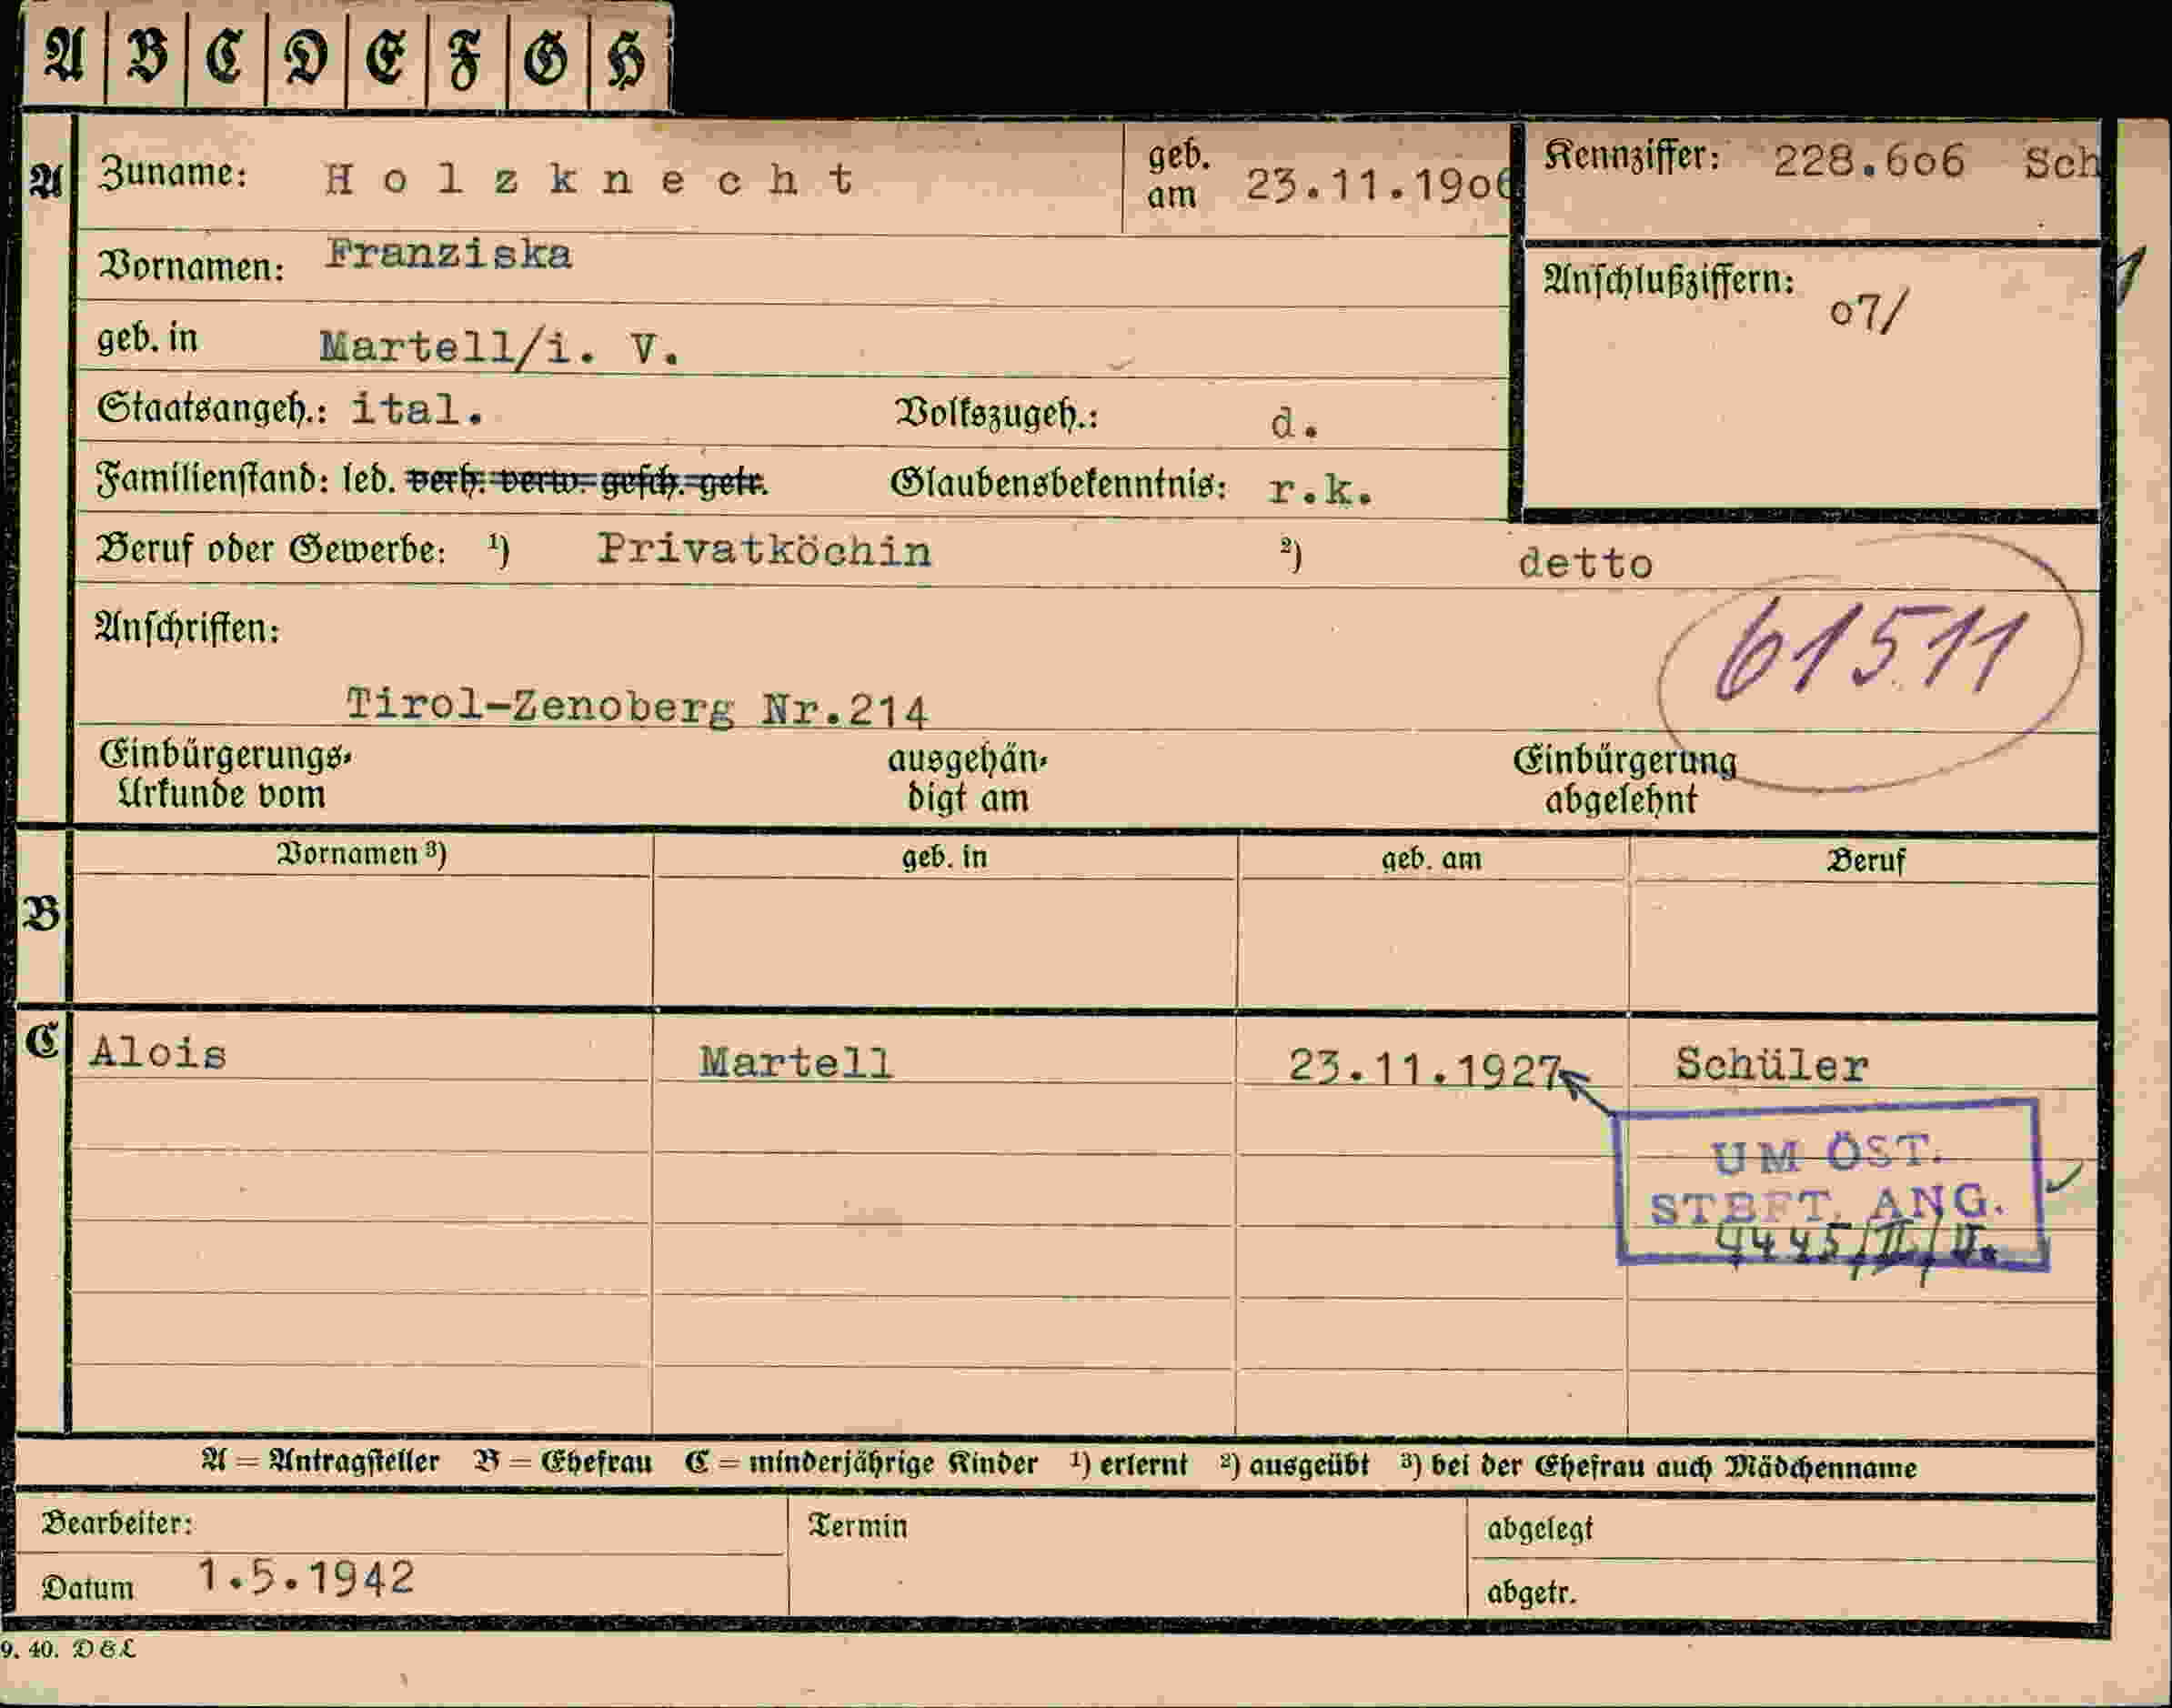 A B C D E F G H
A Zuname: Holzknecht geb. am 23.11.1906 Kennziffer: 228.606 Sch
Vornamen: Franziska
Anschlußziffern: 07/
geb. in Martell/i. V.
Staatsangeh.: ital. Volkszugeh.: d.
Familienstand: led. verh. verw. gesch. getr. Glaubensbekenntnis: r.k.
Beruf oder Gewerbe: 1) Privatköchin 2) detto
Anschriften:
61511
Tirol-Zenoberg Nr.214
Einbürgerungs- ausgehän- Einbürgerung
Urkunde vom digt am abgelehnt
Vornamen 3) geb. in geb. am Beruf
B
C Alois Martell 23.11.1927 Schüler
UM ÖST.
STBFT. ANG.
A = Antragsteller B = Ehefrau C = minderjährige Kinder 1) erlernt 2) ausgeübt 3) bei der Ehefrau auch Mädchenname
Bearbeiter: Termin abgelegt
Datum 1.5.1942 abgetr.
9. 40. D & L